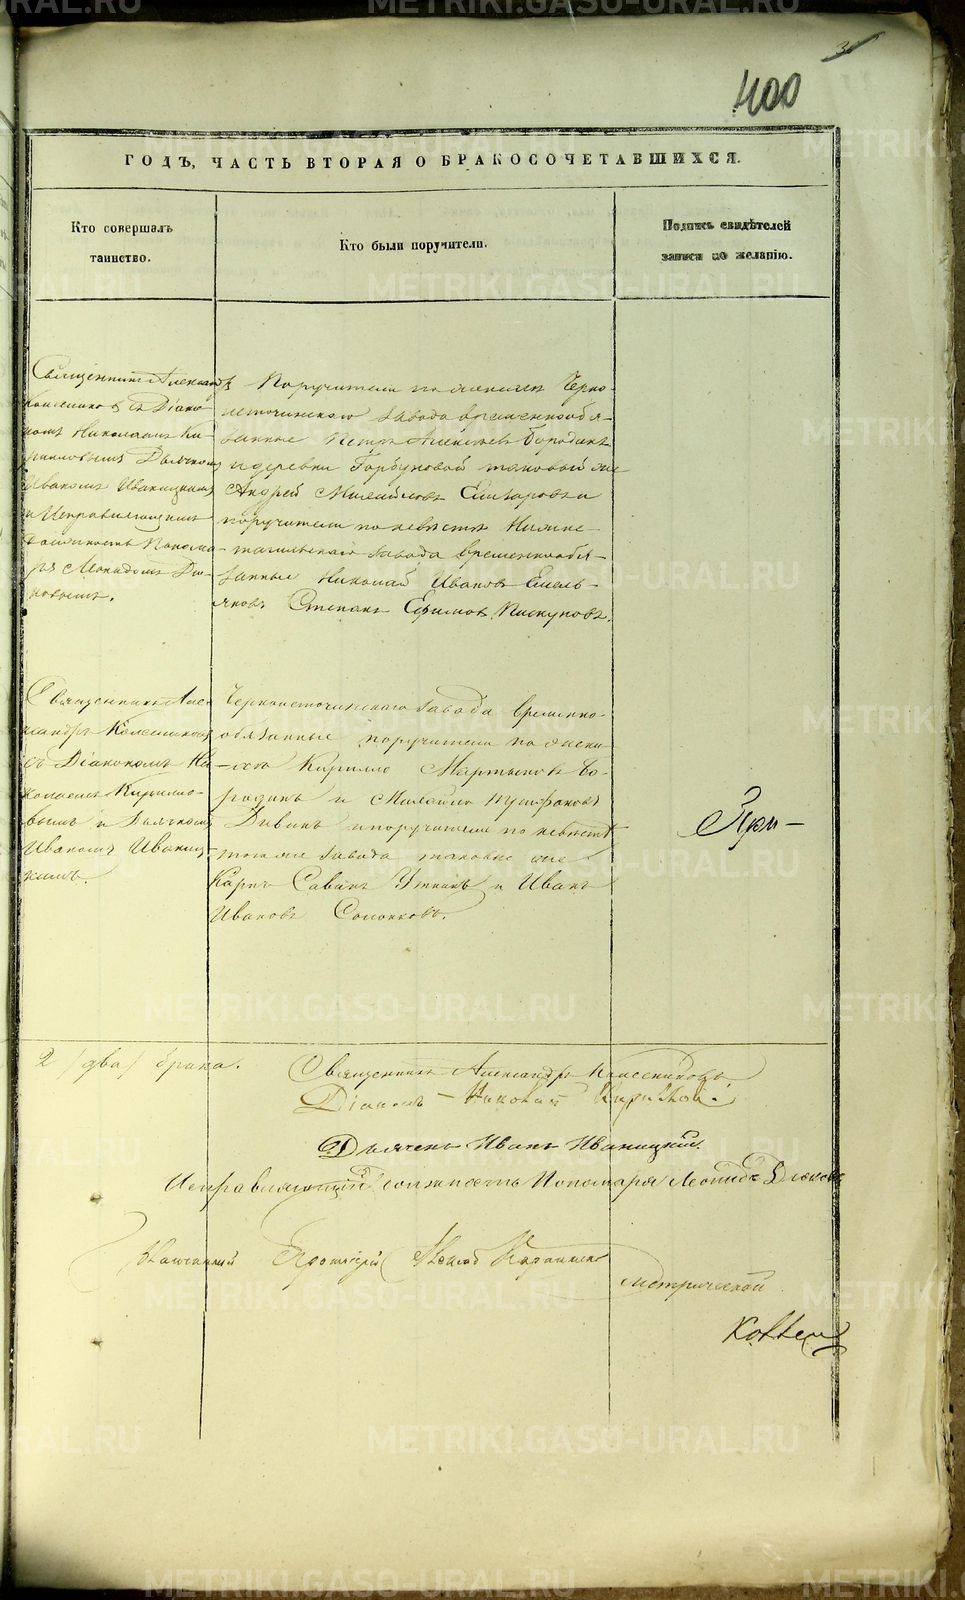 400
ГОДЪ, ЧАСТЬ ВТОРАЯ О БРАКОСОЧЕТАВШИХСЯ.
Кто совершалъ
таинство.
Кто были поручители.
Подпись свидѣтелей
записи по желанію.
Священникъ Александръ
Колесниковъ съ Діако-
номъ Николаемъ Ки-
рилловымъ Дьячкомъ
Иваномъ Иваницкимъ
и Исправляющимъ
должность Понома-
ря Леонидомъ Дю-
ковымъ.
Поручители по женихѣ Черно-
источинскаго завода временнообя-
занные Петръ Алексѣевъ Бородинъ
и деревни Горбуновой таковый же
Андрей Михайловъ и
поручители по невѣстѣ Нижне-
тагильскаго завода временнообя-
занные Николай Ивановъ Емель-
яновъ Степанъ Ефимовъ Пискуновъ.
Священникъ Алек-
сандръ Колесниковъ
съ Діакономъ Ни-
колаемъ Кирилло-
вымъ и Дьячкомъ
Иваномъ Иваниц-
кимъ.
Черноисточинскаго завода временно-
обязанные поручители по жени-
хѣ Кирилло Мартыновъ Бо-
родинъ и Михайло
и поручители по невѣстѣ
тогоже завода таковые же
Карпъ Савинъ Уткинъ и Иванъ
Ивановъ Солонковъ.
При-
2 /два/ брака.
Священникъ Александръ Колесниковъ
Діаконъ Николай
Дьячекъ Иванъ Иваницкій.
Исправляющій должность Пономаря Леонидъ Дюковъ
Протоіерей
метрической